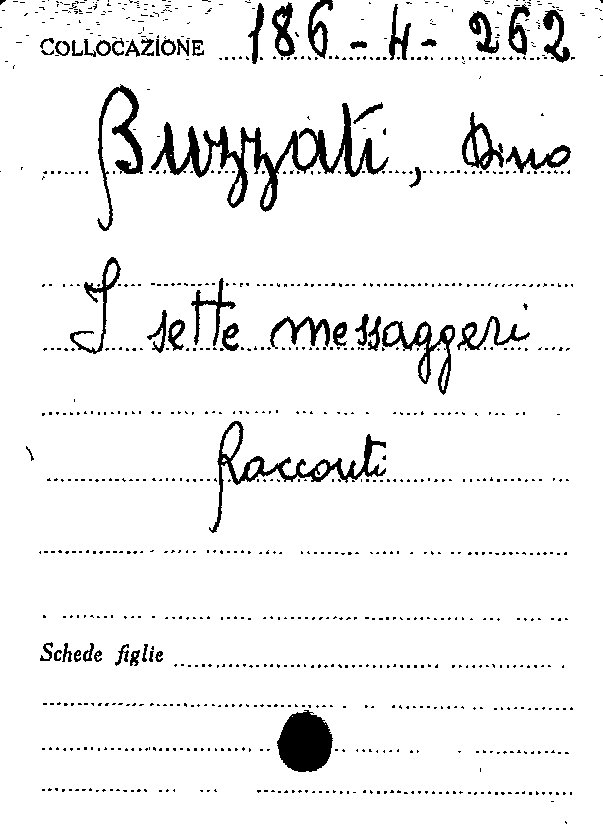 COLLOCAZIONE 186-4-262
Buzzati, Dino
I sette messaggeri
Racconti
Schede figlie